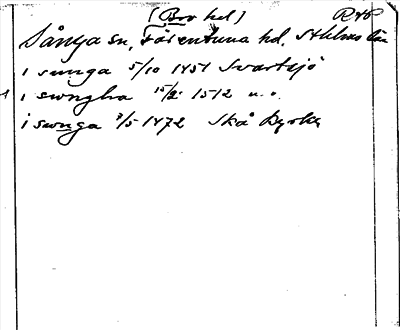 (Bro hd)
Sånga sn, Färentuna hd, Sthlms län
i sunga 5/10 1451 Svartsjö
i swngha 15/2 1512 u. o.
i swnga 3/5 1472 Skå kyrka